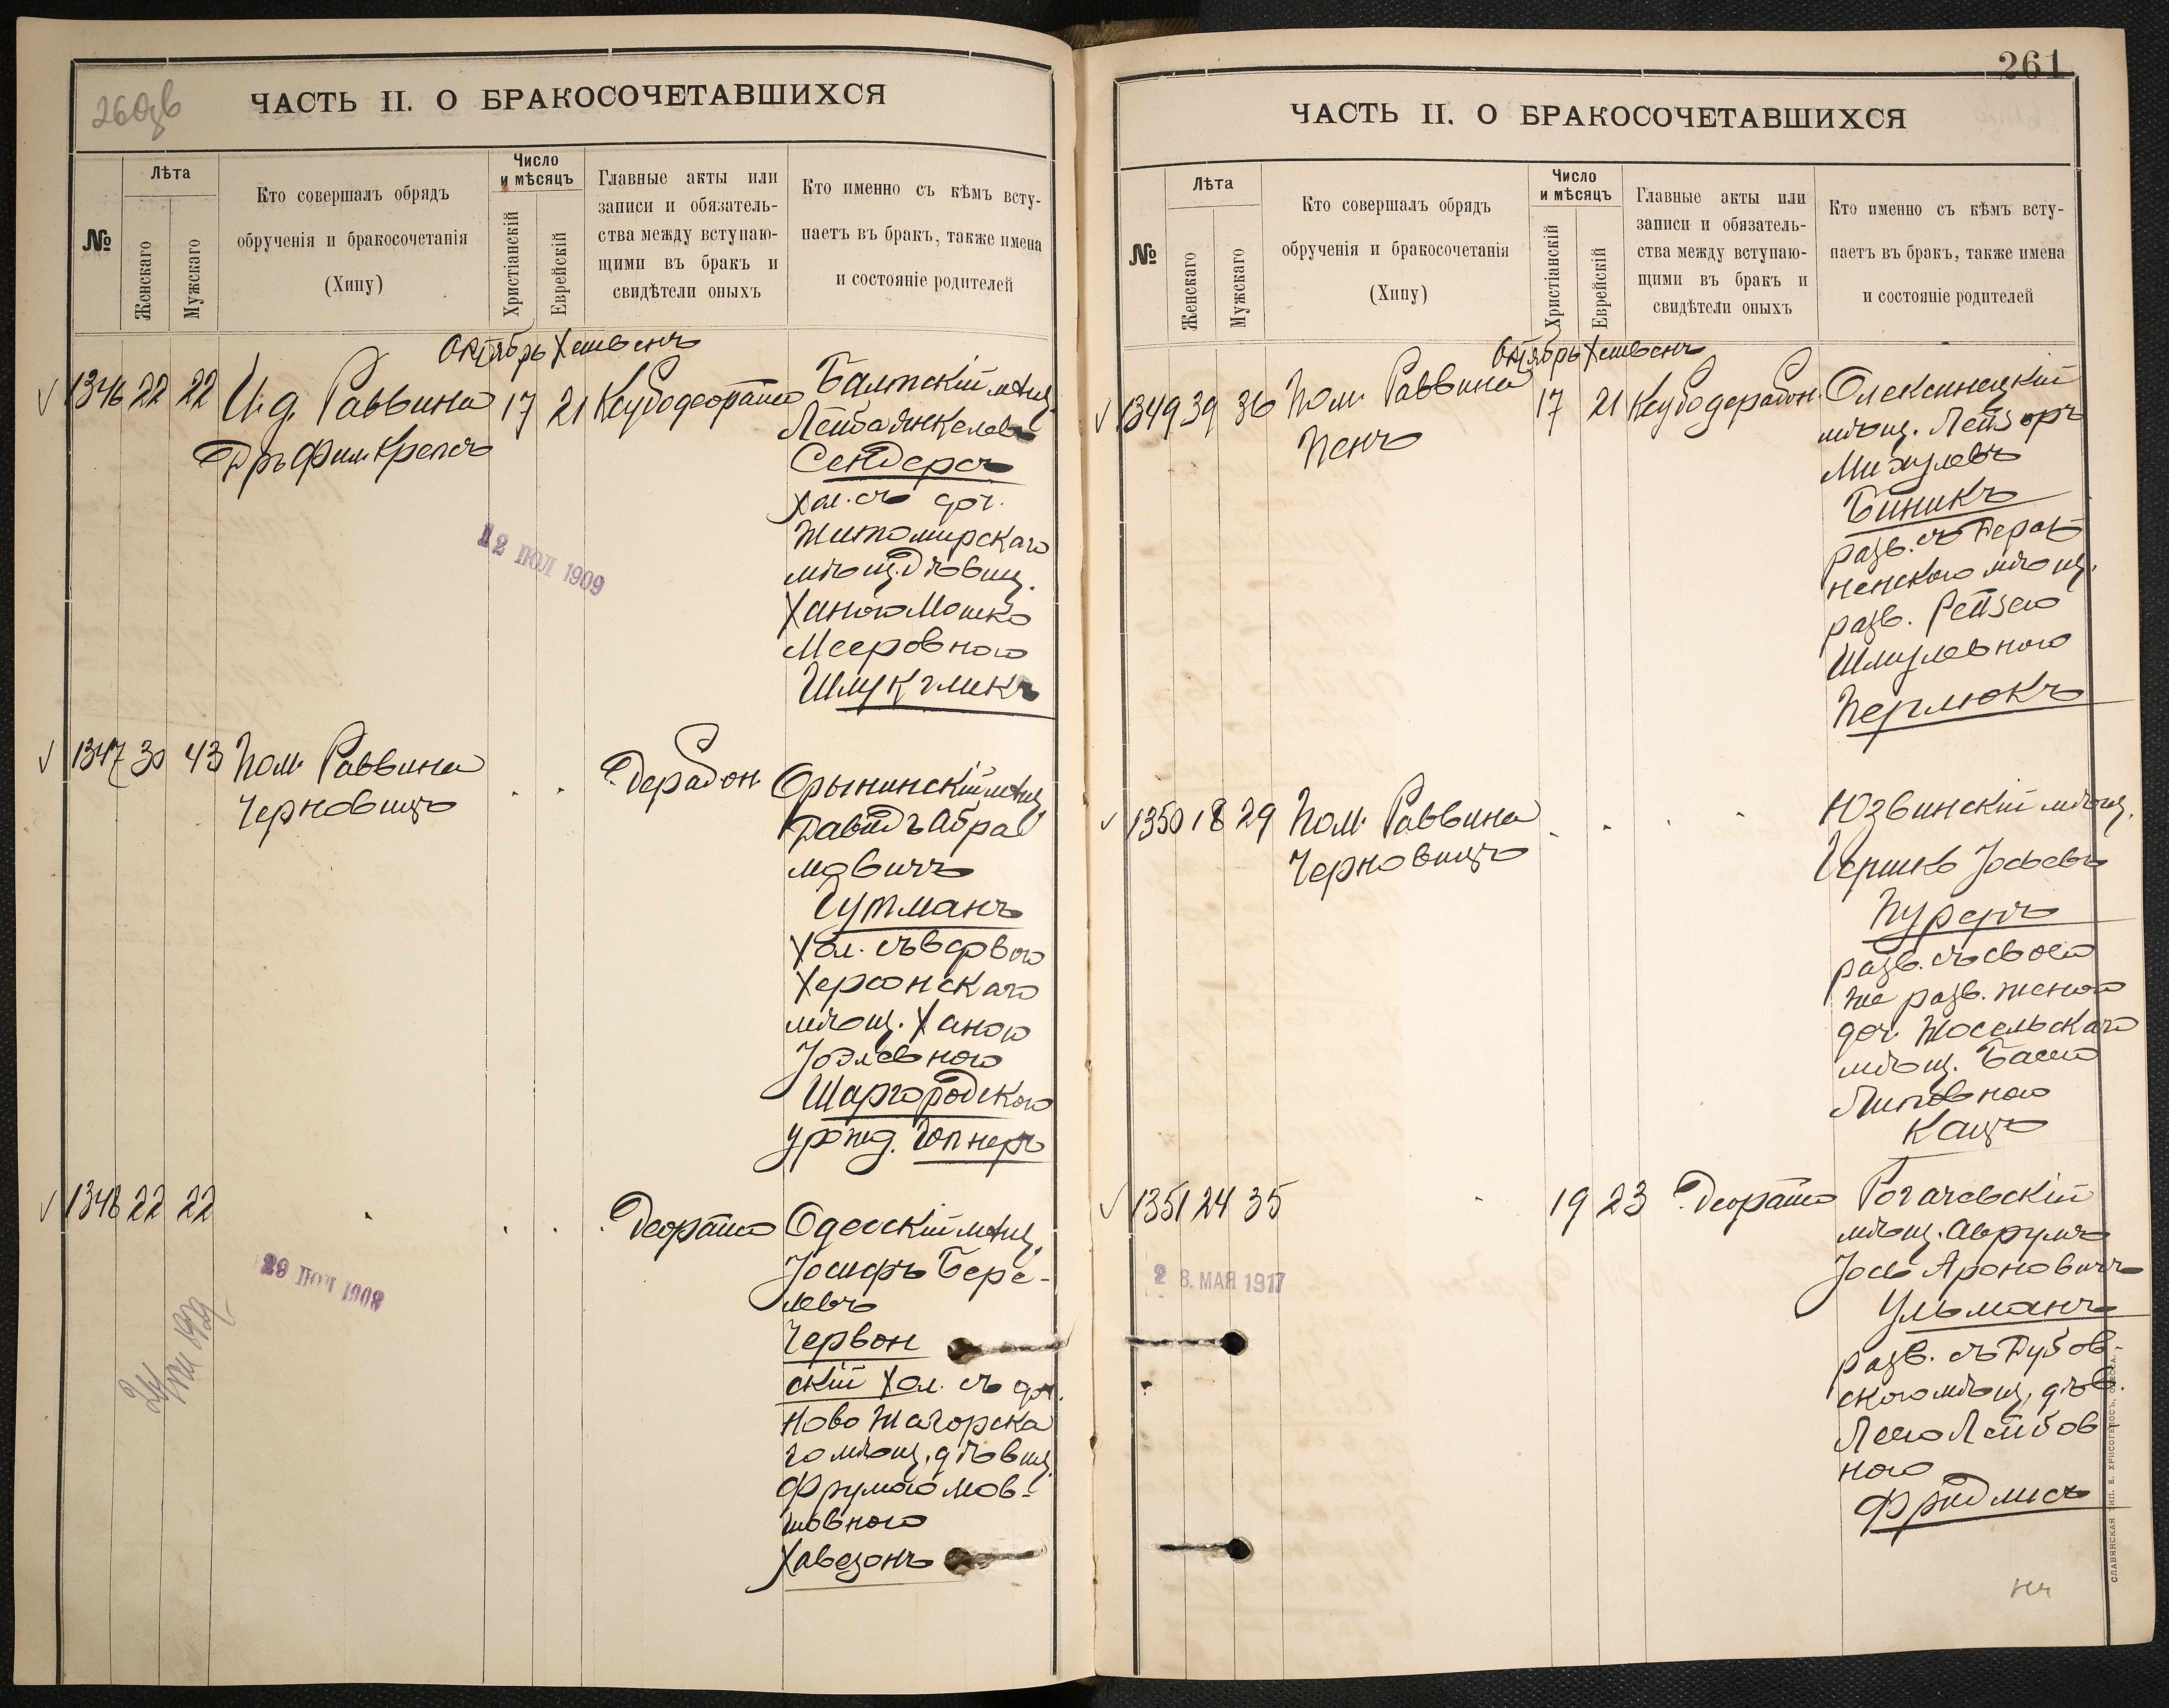 260об
ЧАСТЬ II. О БРАКОСОЧЕТАВШИХСЯ
№
Лѣта
Женскаго
Мужскаго
Кто совершалъ обрядъ
обрученія и бракосочетанія
(Хипу)
Число
и мѣсяцъ
Христіанскій
Еврейскій
Главные акты или
записи и обязатель-
ства между вступаю-
щими въ бракъ и
свидѣтели оныхъ
Кто именно съ кѣмъ всту-
паетъ въ бракъ, также имена
и состояніе родителей
Октябрь Хешвенъ
1346 22 22 И. д. Раввина 17 21
Дръ Фил. Крепсъ
Балтскій мѣщ.
Лейба Янкелевъ
Сендеръ
Хол. съ доч.
Житомирскаго
мѣщ. дѣвиц.
Ханою Мошко
Мееровною
Шмукликъ
12 ІЮЛ 1909
1347 30 43 Пом. Раввина
Черновицъ
Орынинскій мѣщ.
Давидъ Абра
мовичъ
Гутманъ
Хол. съ вдовою
Херсонскаго
мѣщ. Ханою
Іоэлевною
Шаргородскою
урожд. Гопнеръ
1348 22 22
Одесскій мѣщ.
Іосифъ Бере-
левъ
Червон
скій Хол. съ доч.
Ново Жагорска
го мѣщ. дѣвиц.
Фрумою Мов-
шовною
Хавезонъ
29 1908
261
ЧАСТЬ II. О БРАКОСОЧЕТАВШИХСЯ
№
Лѣта
Женскаго
Мужскаго
Кто совершалъ обрядъ
обрученія и бракосочетанія
(Хипу)
Число
и мѣсяцъ
Христіанскій
Еврейскій
Главные акты или
записи и обязатель-
ства между вступаю-
щими въ бракъ и
свидѣтели оныхъ
Кто именно съ кѣмъ всту-
паетъ въ бракъ, также имена
и состояніе родителей
Октябрь Хешвенъ
1349 39 36 Пом. Раввина 17 21
Пенъ
Олексинецкій
мѣщ. Лейзоръ
Михулевъ
Биникъ
разв. съ Бераз
ненскою мѣщ.
разв. Рейзею
Шмулевною
Перлюкъ
1350 18 29 Пом. Раввина
Черновицъ
Юзвинскій мѣщ.
Гершко Іосьевъ
Пуренъ
разв. съ своею
же разв. женою
доч. Жосельскаго
мѣщ. Басею
Липовною
Кацъ
1351 24 35 19 23
Рогачевскій
мѣщ. Аврумъ
Іось Ароновичъ
Ульманъ
разв. съ Дубов-
скою мѣщ. дѣв.
Леею Лейбов
ною
Фридлисъ
2 8. МАЯ 1917